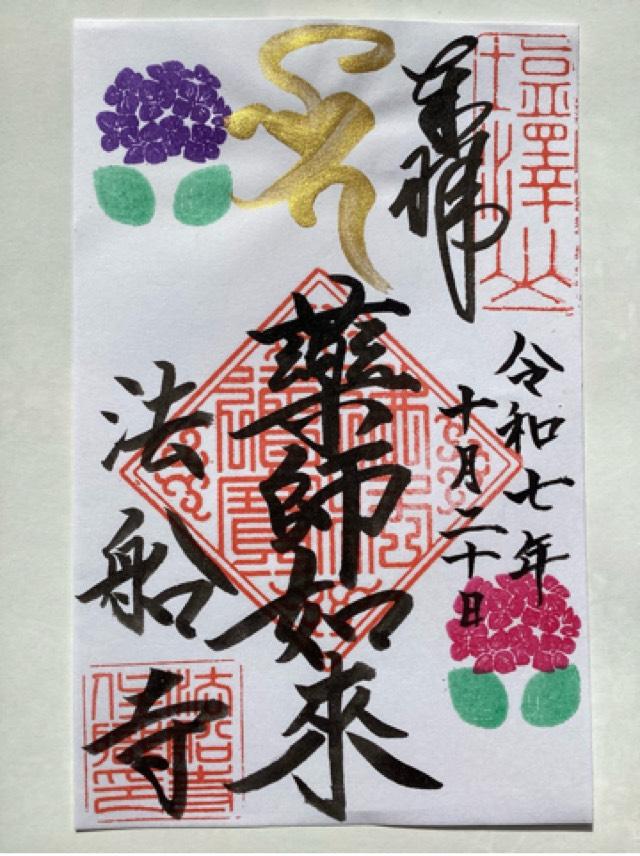 塩澤山
奉拝
令和七年
十月二十日
薬師如來
法船寺